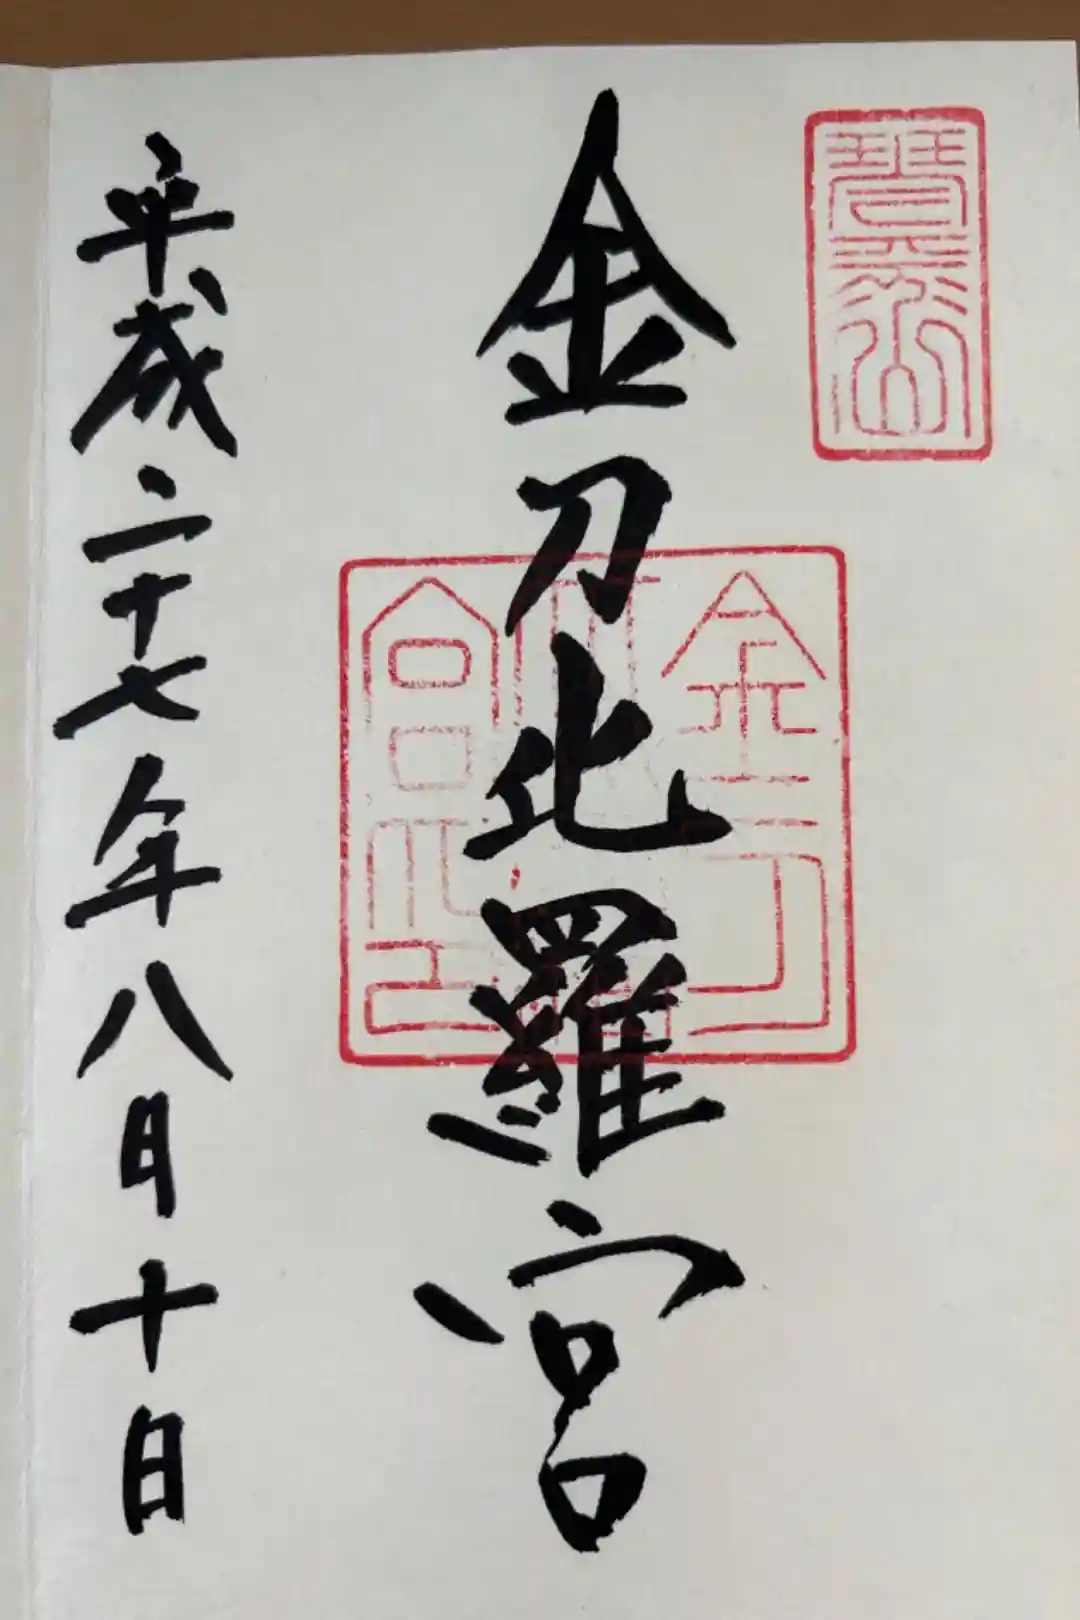 琴平山
金刀比羅宮
金刀比羅宮印
平成二十七年八月十日